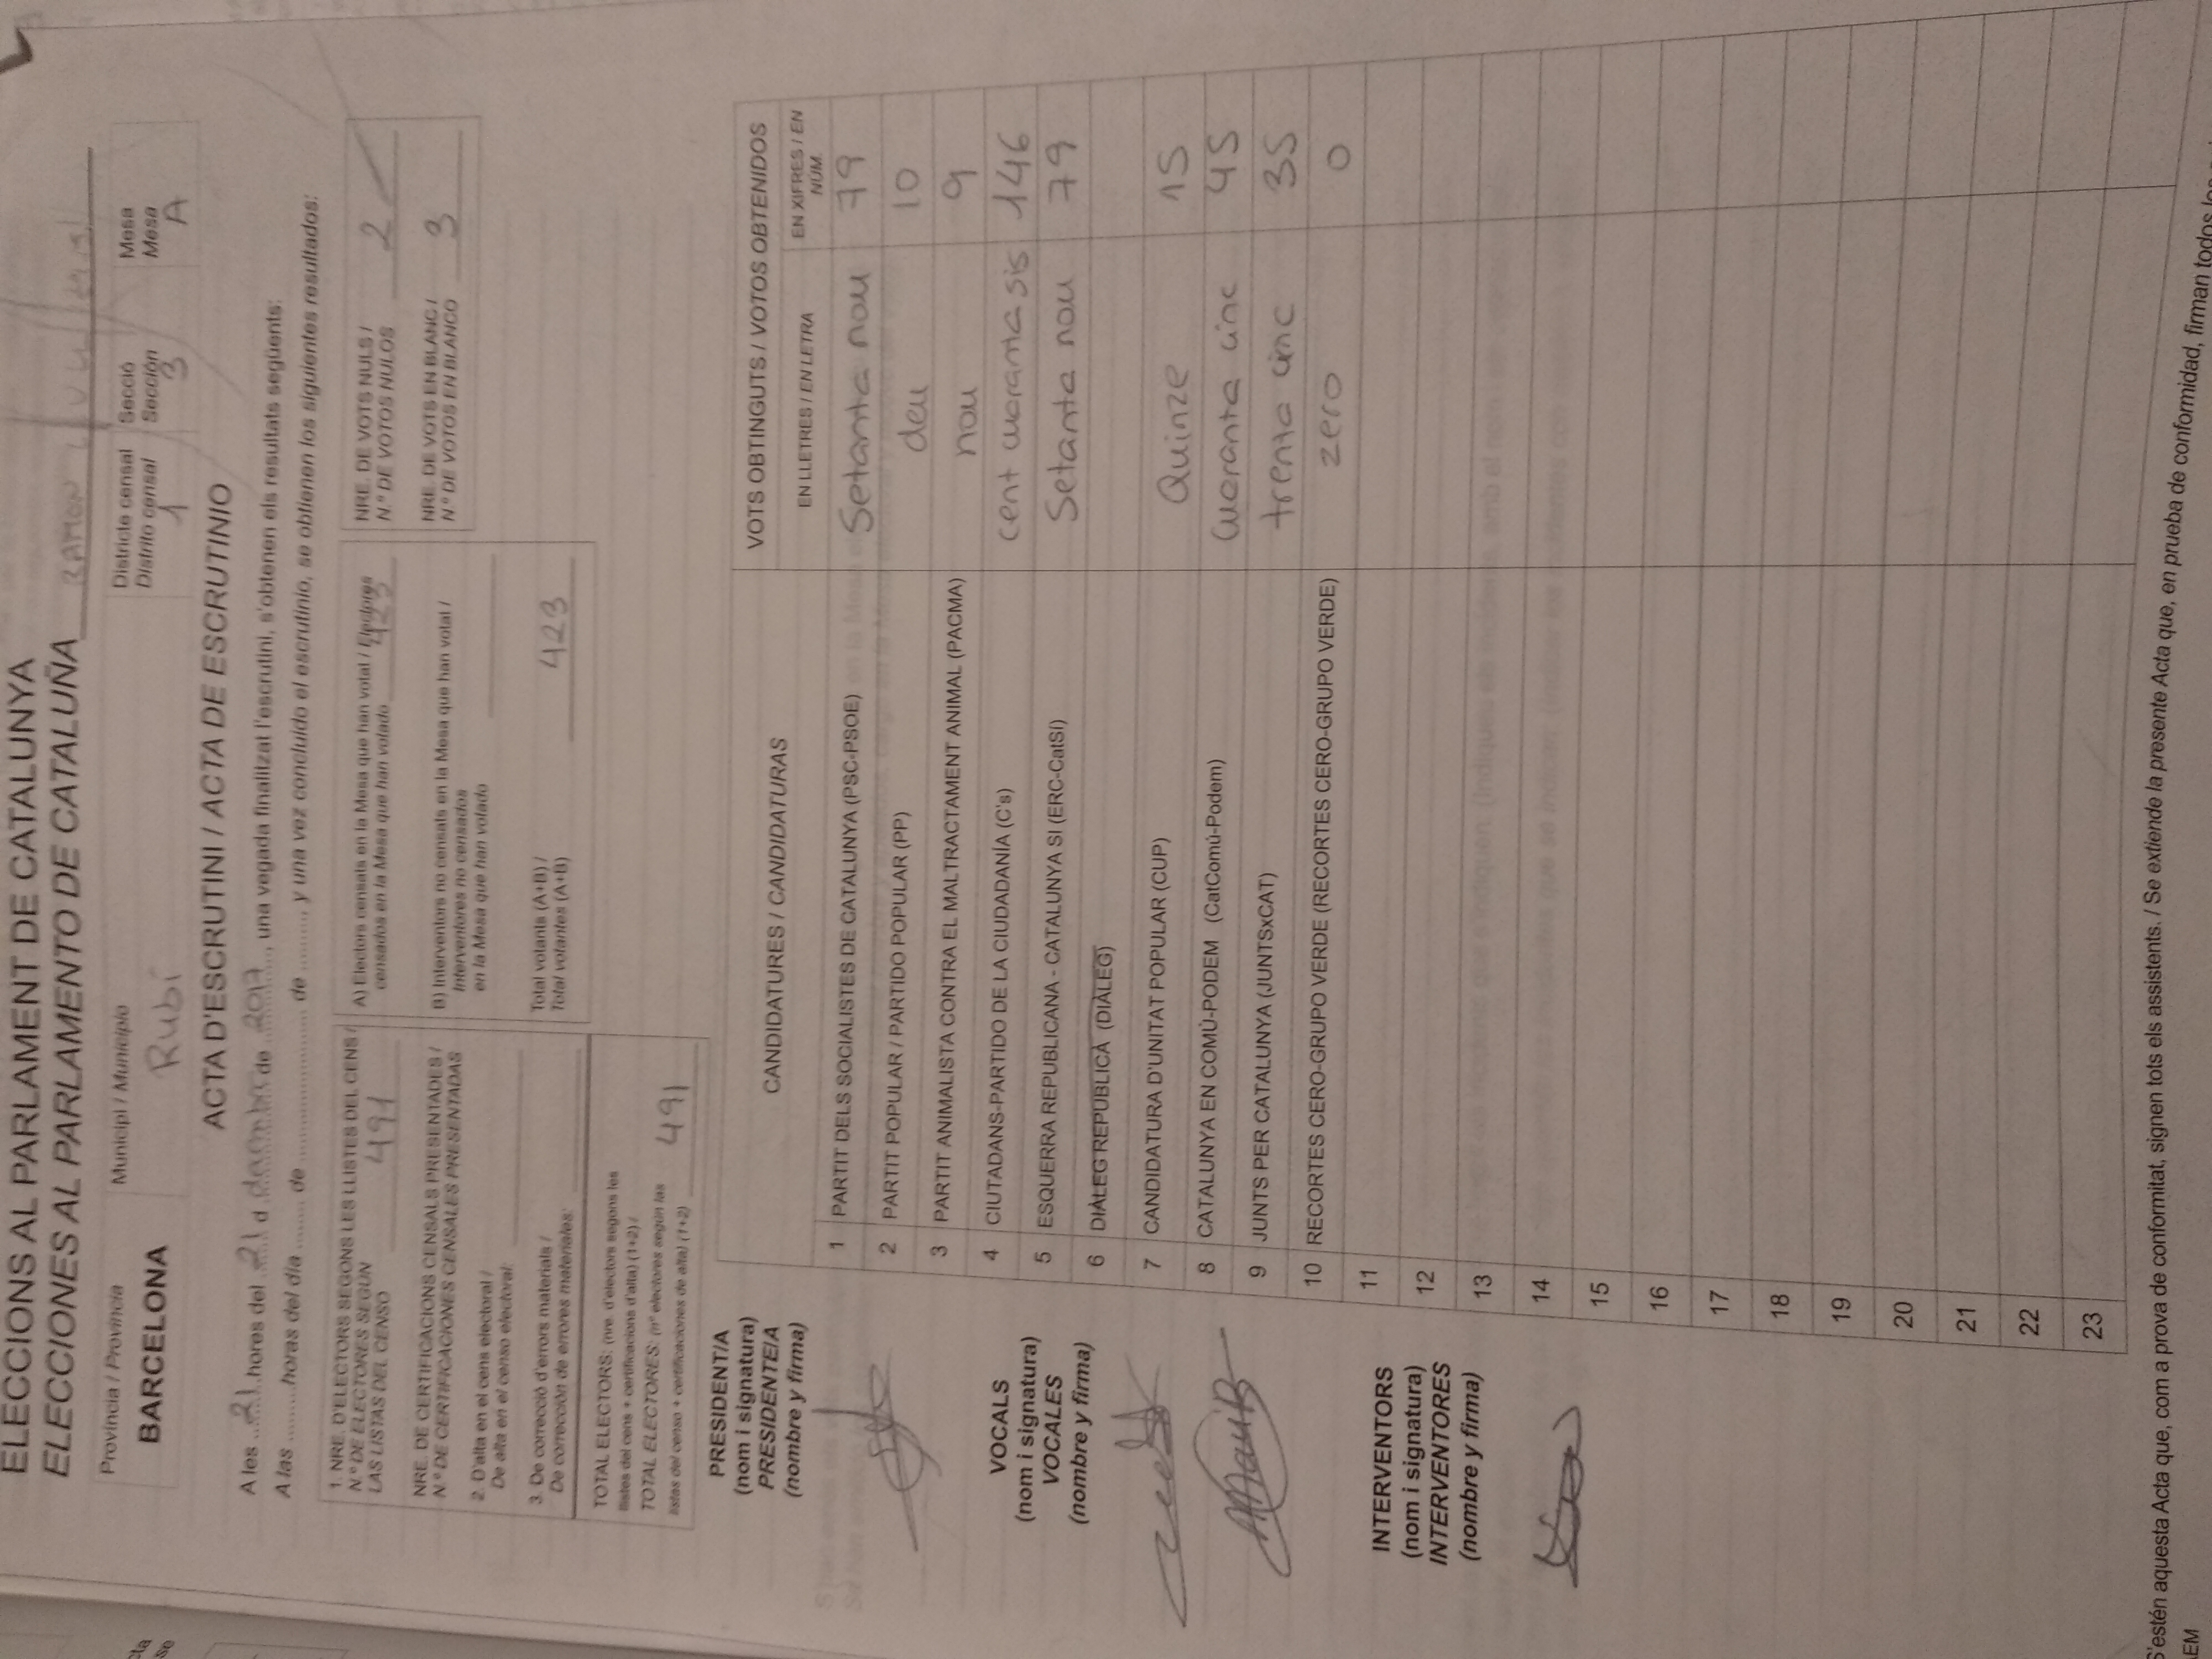 ELECCIONS AL PARLAMENT DE CATALUNYA
ELECCIONES AL PARLAMENTO DE CATALUÑA RAMON
Província / Provincia
BARCELONA
Municipi / Municipio
Rubí
Districte censal
Distrito censal
1
Secció
Sección
3
Mesa
Mesa
A
ACTA D'ESCRUTINI / ACTA DE ESCRUTINIO
A les 21 hores del 21 d desembre de 2017, una vegada finalitzat l'escrutini, s'obtenen els resultats següents:
A las .........horas del día ........ de ........................ de ........., y una vez concluido el escrutinio, se obtienen los siguientes resultados:
1. NRE. D'ELECTORS SEGONS LES LLISTES DEL CENS /
N.º DE ELECTORES SEGÚN
LAS LISTAS DEL CENSO 491
NRE. DE CERTIFICACIONS CENSALS PRESENTADES /
N.º DE CERTIFICACIONES CENSALES PRESENTADAS
2. D'alta en el cens electoral /
De alta en el censo electoral:
3. De correcció d'errors materials /
De corrección de errores materiales:
TOTAL ELECTORS: (nre. d'electors segons les
llistes del cens + certificacions d'alta) (1+2) /
TOTAL ELECTORES: (nº electores según las
listas del censo + certificaciones de alta) (1+2) 491
A) Electors censats en la Mesa que han votat / Electores
censados en la Mesa que han votado 423
B) Interventors no censats en la Mesa que han votat /
Interventores no censados
en la Mesa que han votado
Total votants (A+B) /
Total votantes (A+B) 423
NRE. DE VOTS NULS /
N.º DE VOTOS NULOS 2
NRE. DE VOTS EN BLANC /
N.º DE VOTOS EN BLANCO 3
PRESIDENT/A
(nom i signatura)
PRESIDENTE/A
(nombre y firma)
VOCALS
(nom i signatura)
VOCALES
(nombre y firma)
INTERVENTORS
(nom i signatura)
INTERVENTORES
(nombre y firma)
CANDIDATURES / CANDIDATURAS
VOTS OBTINGUTS / VOTOS OBTENIDOS
EN LLETRES / EN LETRA
EN XIFRES / EN
NÚM.
1 PARTIT DELS SOCIALISTES DE CATALUNYA (PSC-PSOE) Setanta nou 79
2 PARTIT POPULAR / PARTIDO POPULAR (PP) deu 10
3 PARTIT ANIMALISTA CONTRA EL MALTRACTAMENT ANIMAL (PACMA) nou 9
4 CIUTADANS-PARTIDO DE LA CIUDADANÍA (C's) cent cuoranta sis 146
5 ESQUERRA REPUBLICANA - CATALUNYA SI (ERC-CatSí) Setanta nou 79
6 DIÀLEG REPUBLICÀ (DIÀLEG)
7 CANDIDATURA D'UNITAT POPULAR (CUP) Quinze 15
8 CATALUNYA EN COMÚ-PODEM (CatComú-Podem) cuoranta cinc 45
9 JUNTS PER CATALUNYA (JUNTSxCAT) trenta cinc 35
10 RECORTES CERO-GRUPO VERDE (RECORTES CERO-GRUPO VERDE) zero 0
11
12
13
14
15
16
17
18
19
20
21
22
23
S'estén aquesta Acta que, com a prova de conformitat, signen tots els assistents. / Se extiende la presente Acta que, en prueba de conformidad, firman todos